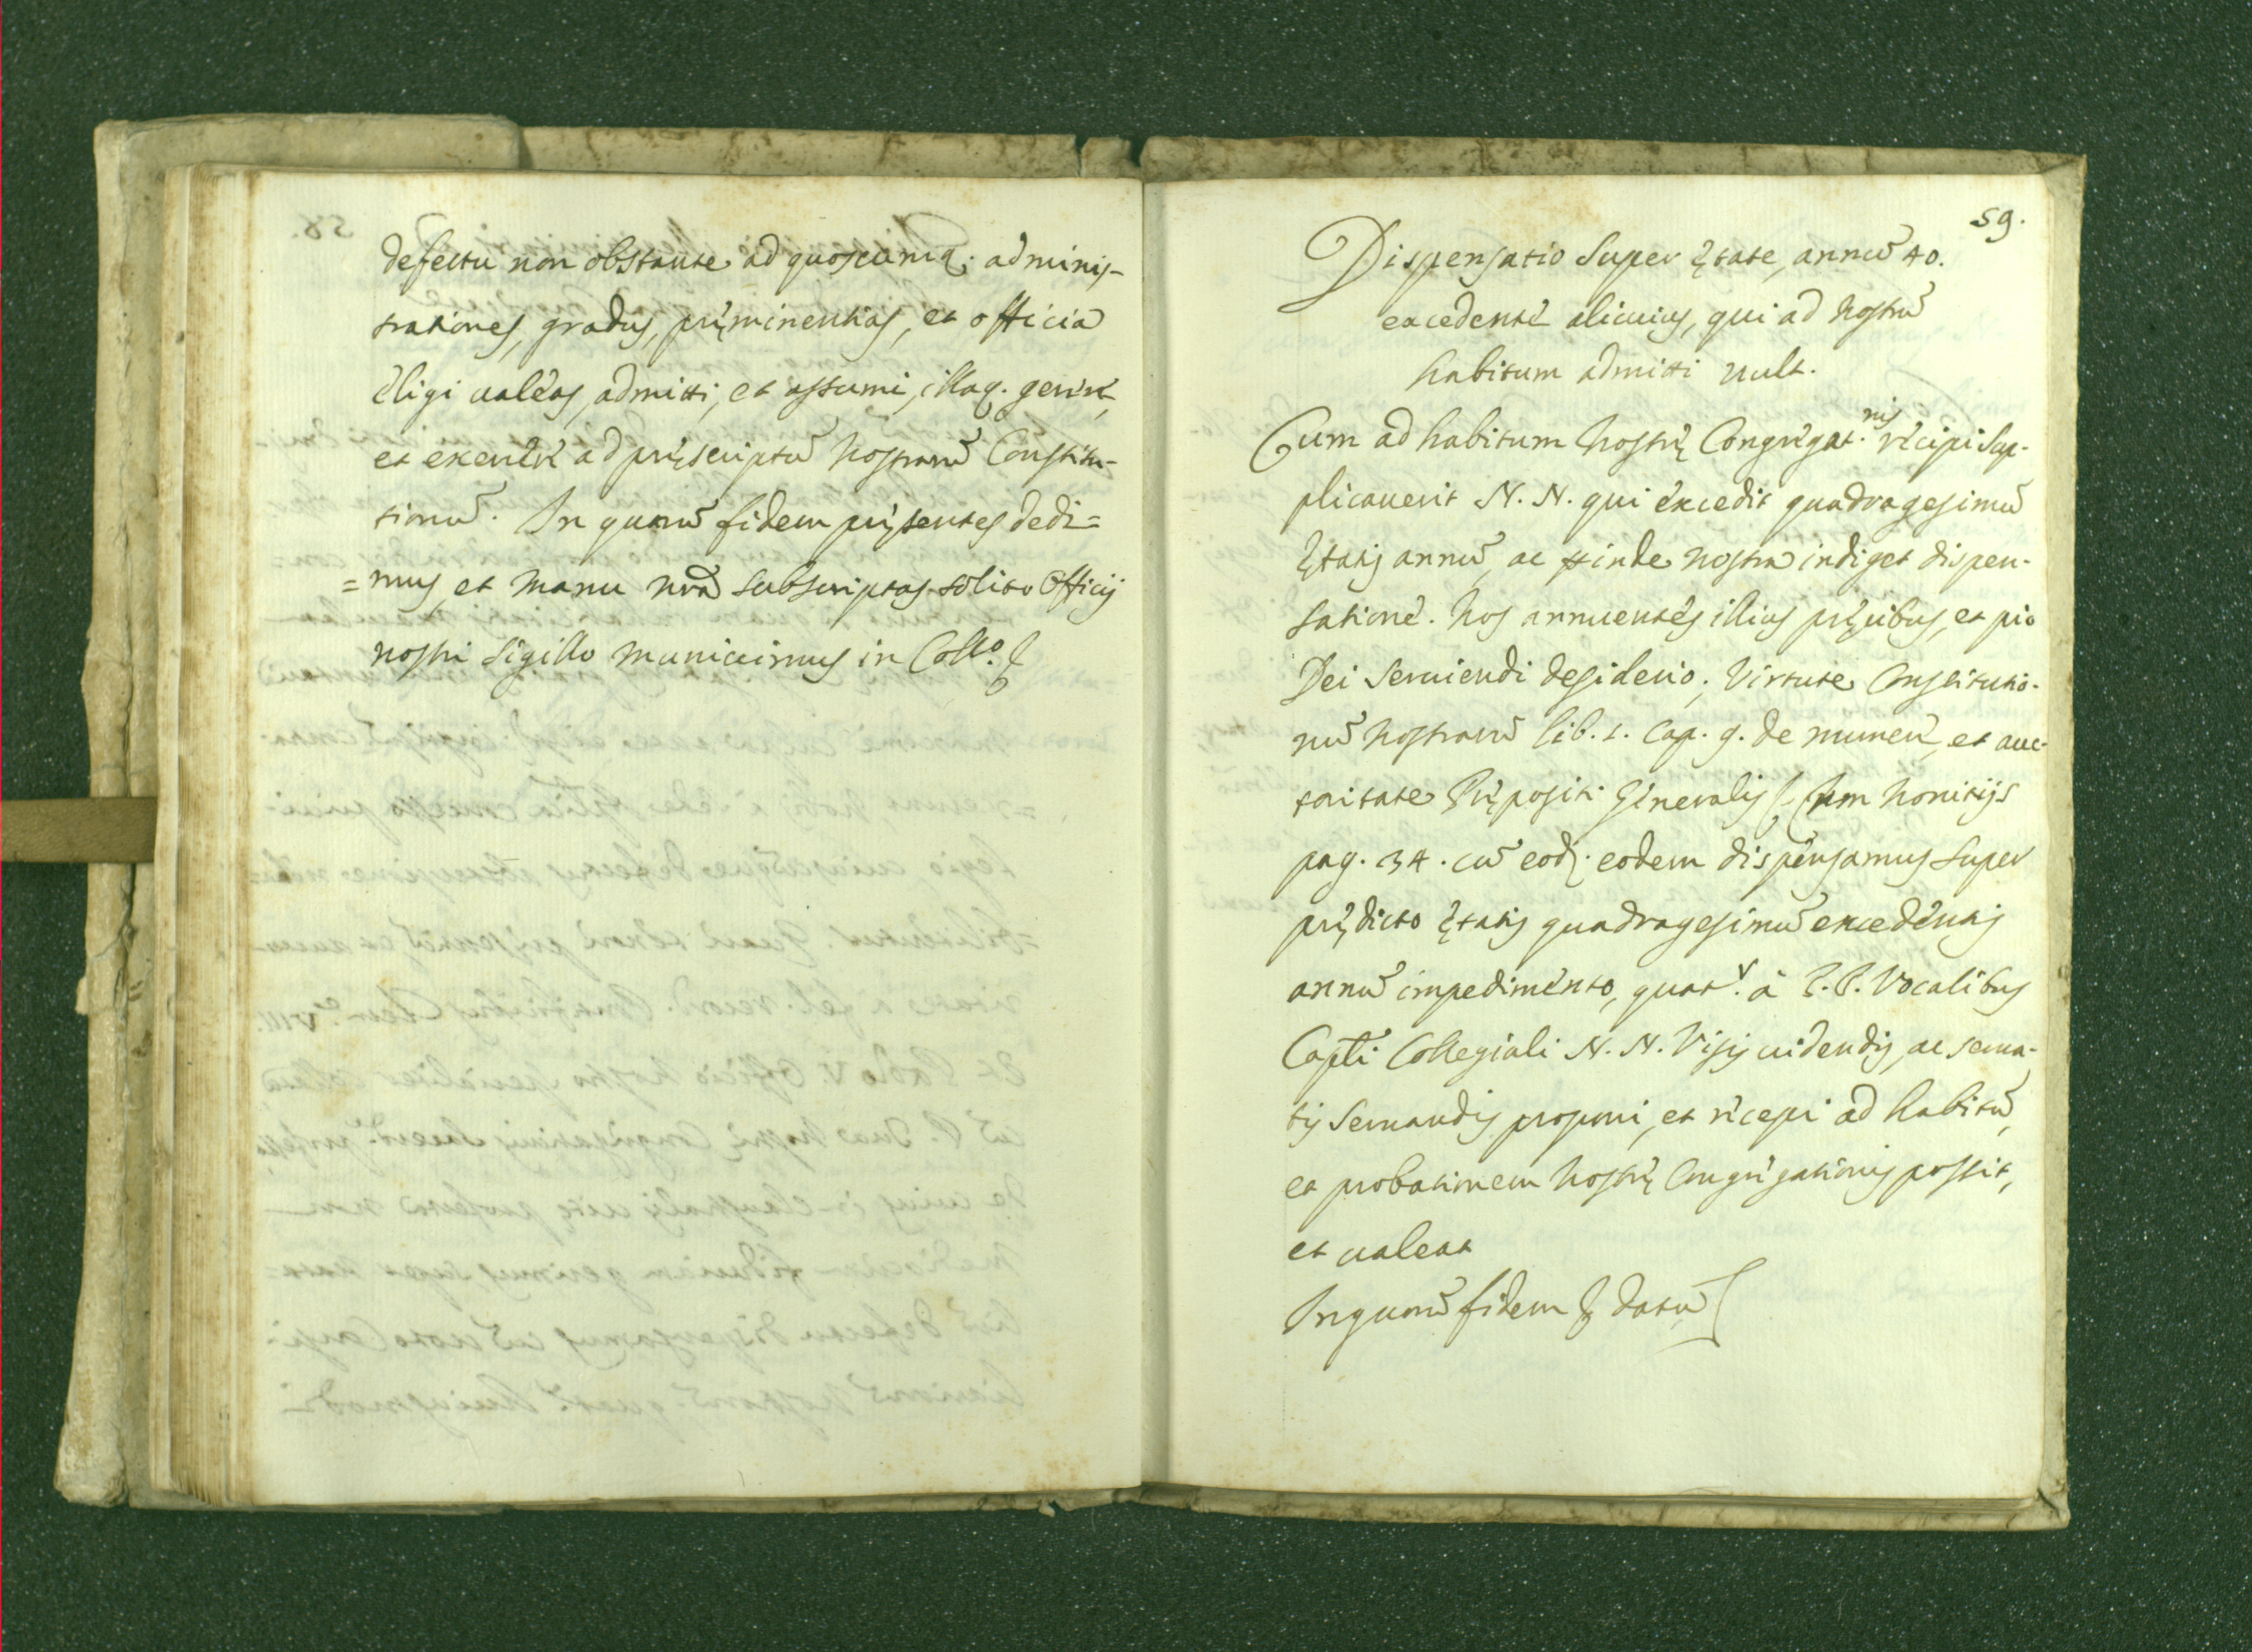 defectu non obstante ad quoscumq; adminis-
trationes, gradus, pręminentias, et officia
eligi ualeas, admitti, et assumi, illaq. gerere,
et exercere ad pręscriptū nostrarū Constitu-
tionū. In quorū fidem pręsentes dedi=
=mus et manu nrā subscriptas solito Officij
nostri sigillo muniuimus in Coll.º &
59.
Dispensatio super ętate, annū 40.
excedente alicuius, qui ad nostrū
habitum admitti uult.
Cum ad habitum nostrę Congregat.nis recipi sup-
plicauerit N. N. qui excedit quadragesimū
ętatis annū, ac inde nostra indiget dispen-
satione. Nos annuentes illius pręcibus, et pio
Dei seruiendi desiderio; Virtute Constitutio-
nū nostrarū lib. 1. Cap. 9. de munere, et auc-
toritate Prępositi Generalis
pag. 34. cū eod. eodem dispensamus super
prędicto ętatis quadragesimū excedentis
annū impedimento, quat.r à P.P. Vocalibus
Capli Collegiali N. N. Visis uidendis, ac serua-
tis seruandis proponi, et recepi ad habitū,
et probationem nostrę Congregationis possit,
et ualeat
In quorū fidem & datū